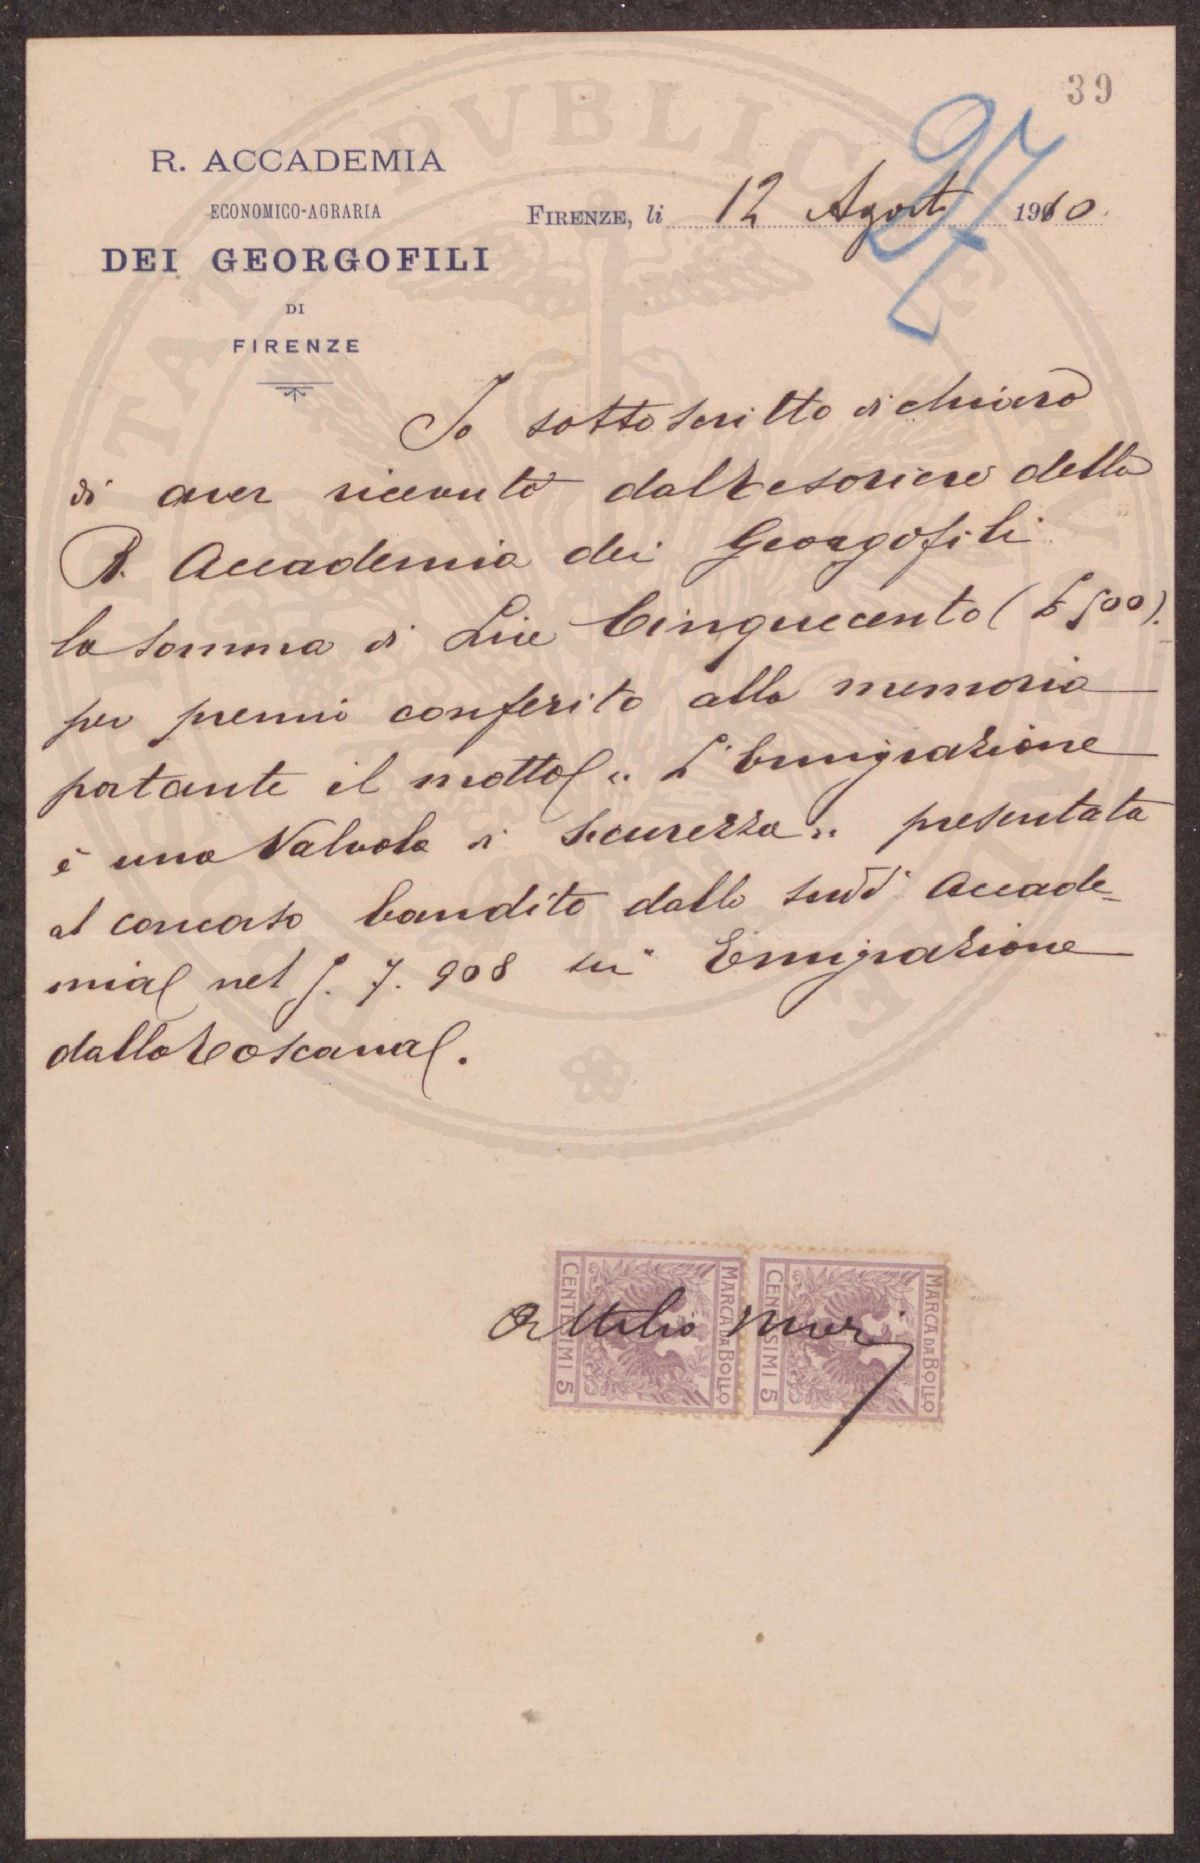 39
R. ACCADEMIA
ECONOMICO-AGRARIA
DEI GEORGOFILI
DI
FIRENZE
27
FIRENZE, li 12 Agosto 1910
Io sottoscritto dichiaro
di aver ricevuto dal Tesoriere della
R. Accademia dei Georgofili
la somma di Lire Cinquecento (L 500).
per premio conferito alla memoria
portante il motto " L'Emigrazione
è una Valvola di Sicurezza " presentata
al concorso bandito dalla sudd. Accade=
mia nel 908 su Emigrazione
dalla Toscana.
Attilio Mori
MARCA DA BOLLO
CENTESIMI 5
MARCA DA BOLLO
CENTESIMI 5
PUBLICAE